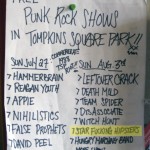 FREE
PUNK ROCK SHOWS
IN
TOMPKINS SQUARE PARK!!
SUN. JULY 27
SUN. AUG. 3RD
HAMMERBRAIN
REAGAN YOUTH
APPLE
NIHILISTICS
FALSE PROPHETS
DAVID PEEL
LEFTOVER CRACK
DEATH MOLD
TEAM SPIDER
DISASSOCIATE
WITCH HUNT
STAR FUCKING HIPSTERS
HUNGRY MARCH BAND